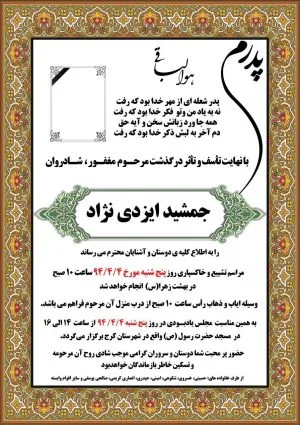 پدرم
هو الباقی
پدر شعله ای از مهر خدا بود که رفت
نه به یاد من و تو فکر خدا بود که رفت
همه جا ورد زبانش سخن و آیه حق
دم آخر به لبش ذکر خدا بود که رفت
با نهایت تأسف و تأثر درگذشت مرحوم مغفور، شادروان
جمشید ایزدی نژاد
را به اطلاع کلیه ی دوستان و آشنایان محترم می رساند
مراسم تشییع و خاکسپاری روز پنج شنبه مورخ ۹۴/۴/۴ ساعت ۱۰ صبح
در بهشت زهرا(س) انجام خواهد شد
وسیله ایاب و ذهاب رأس ساعت ۱۰ صبح از درب منزل آن مرحوم فراهم می باشد.
به همین مناسبت مجلس یادبودی در روز پنج شنبه ۹۴/۴/۴ از ساعت ۱۴ الی ۱۶
در مسجد حضرت رسول (ص) واقع در شهرستان کرج برگزار می گردد.
حضور پر محبت شما دوستان و سروران گرامی موجب شادی روح آن مرحومه
و تسکین خاطر بازماندگان خواهد بود
از طرف خانواده های: حسینی، خسروی، شکوهی، امینی، حیدری، انصاری کریمی، صالحی یوسفی و سایر اقوام وابسته